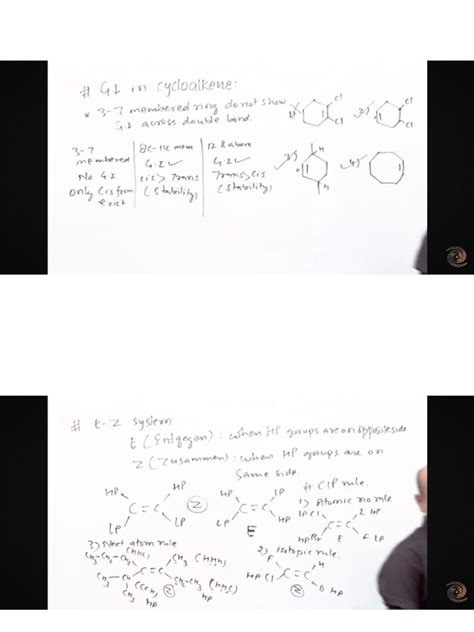 # G.I in cycloalkene:
* 3-7 membered ring do not show
G.I across double bond.
1) Cl Cl
2) Cl Cl
3-7 membered
No G.I
only cis form exist
8C-11C mem
G.I ✓
cis > Trans
(Stability)
12 & above
G.I ✓
Trans > cis
(Stability)
3) H H
4)
# E-Z system
E (Entgegen): when HP groups are on opposite side
Z (Zusammen): when HP groups are on
Same side.
HP HP
C=C
LP LP
Z
HP LP
C=C
LP HP
E
# CIP rule.
1) Atomic no rule
LP Cl I HP
C=C
HP Br F LP
E
3) Next atom rule
CH3-CH2-CH2 (CHH) CH3 (HHH)
C=C
CH3-CH (CCH) CH2-CH3 (CHH)
CH3 HP HP
Z
2) Isotopic rule.
F H
C=C
HP Cl D HP
Z